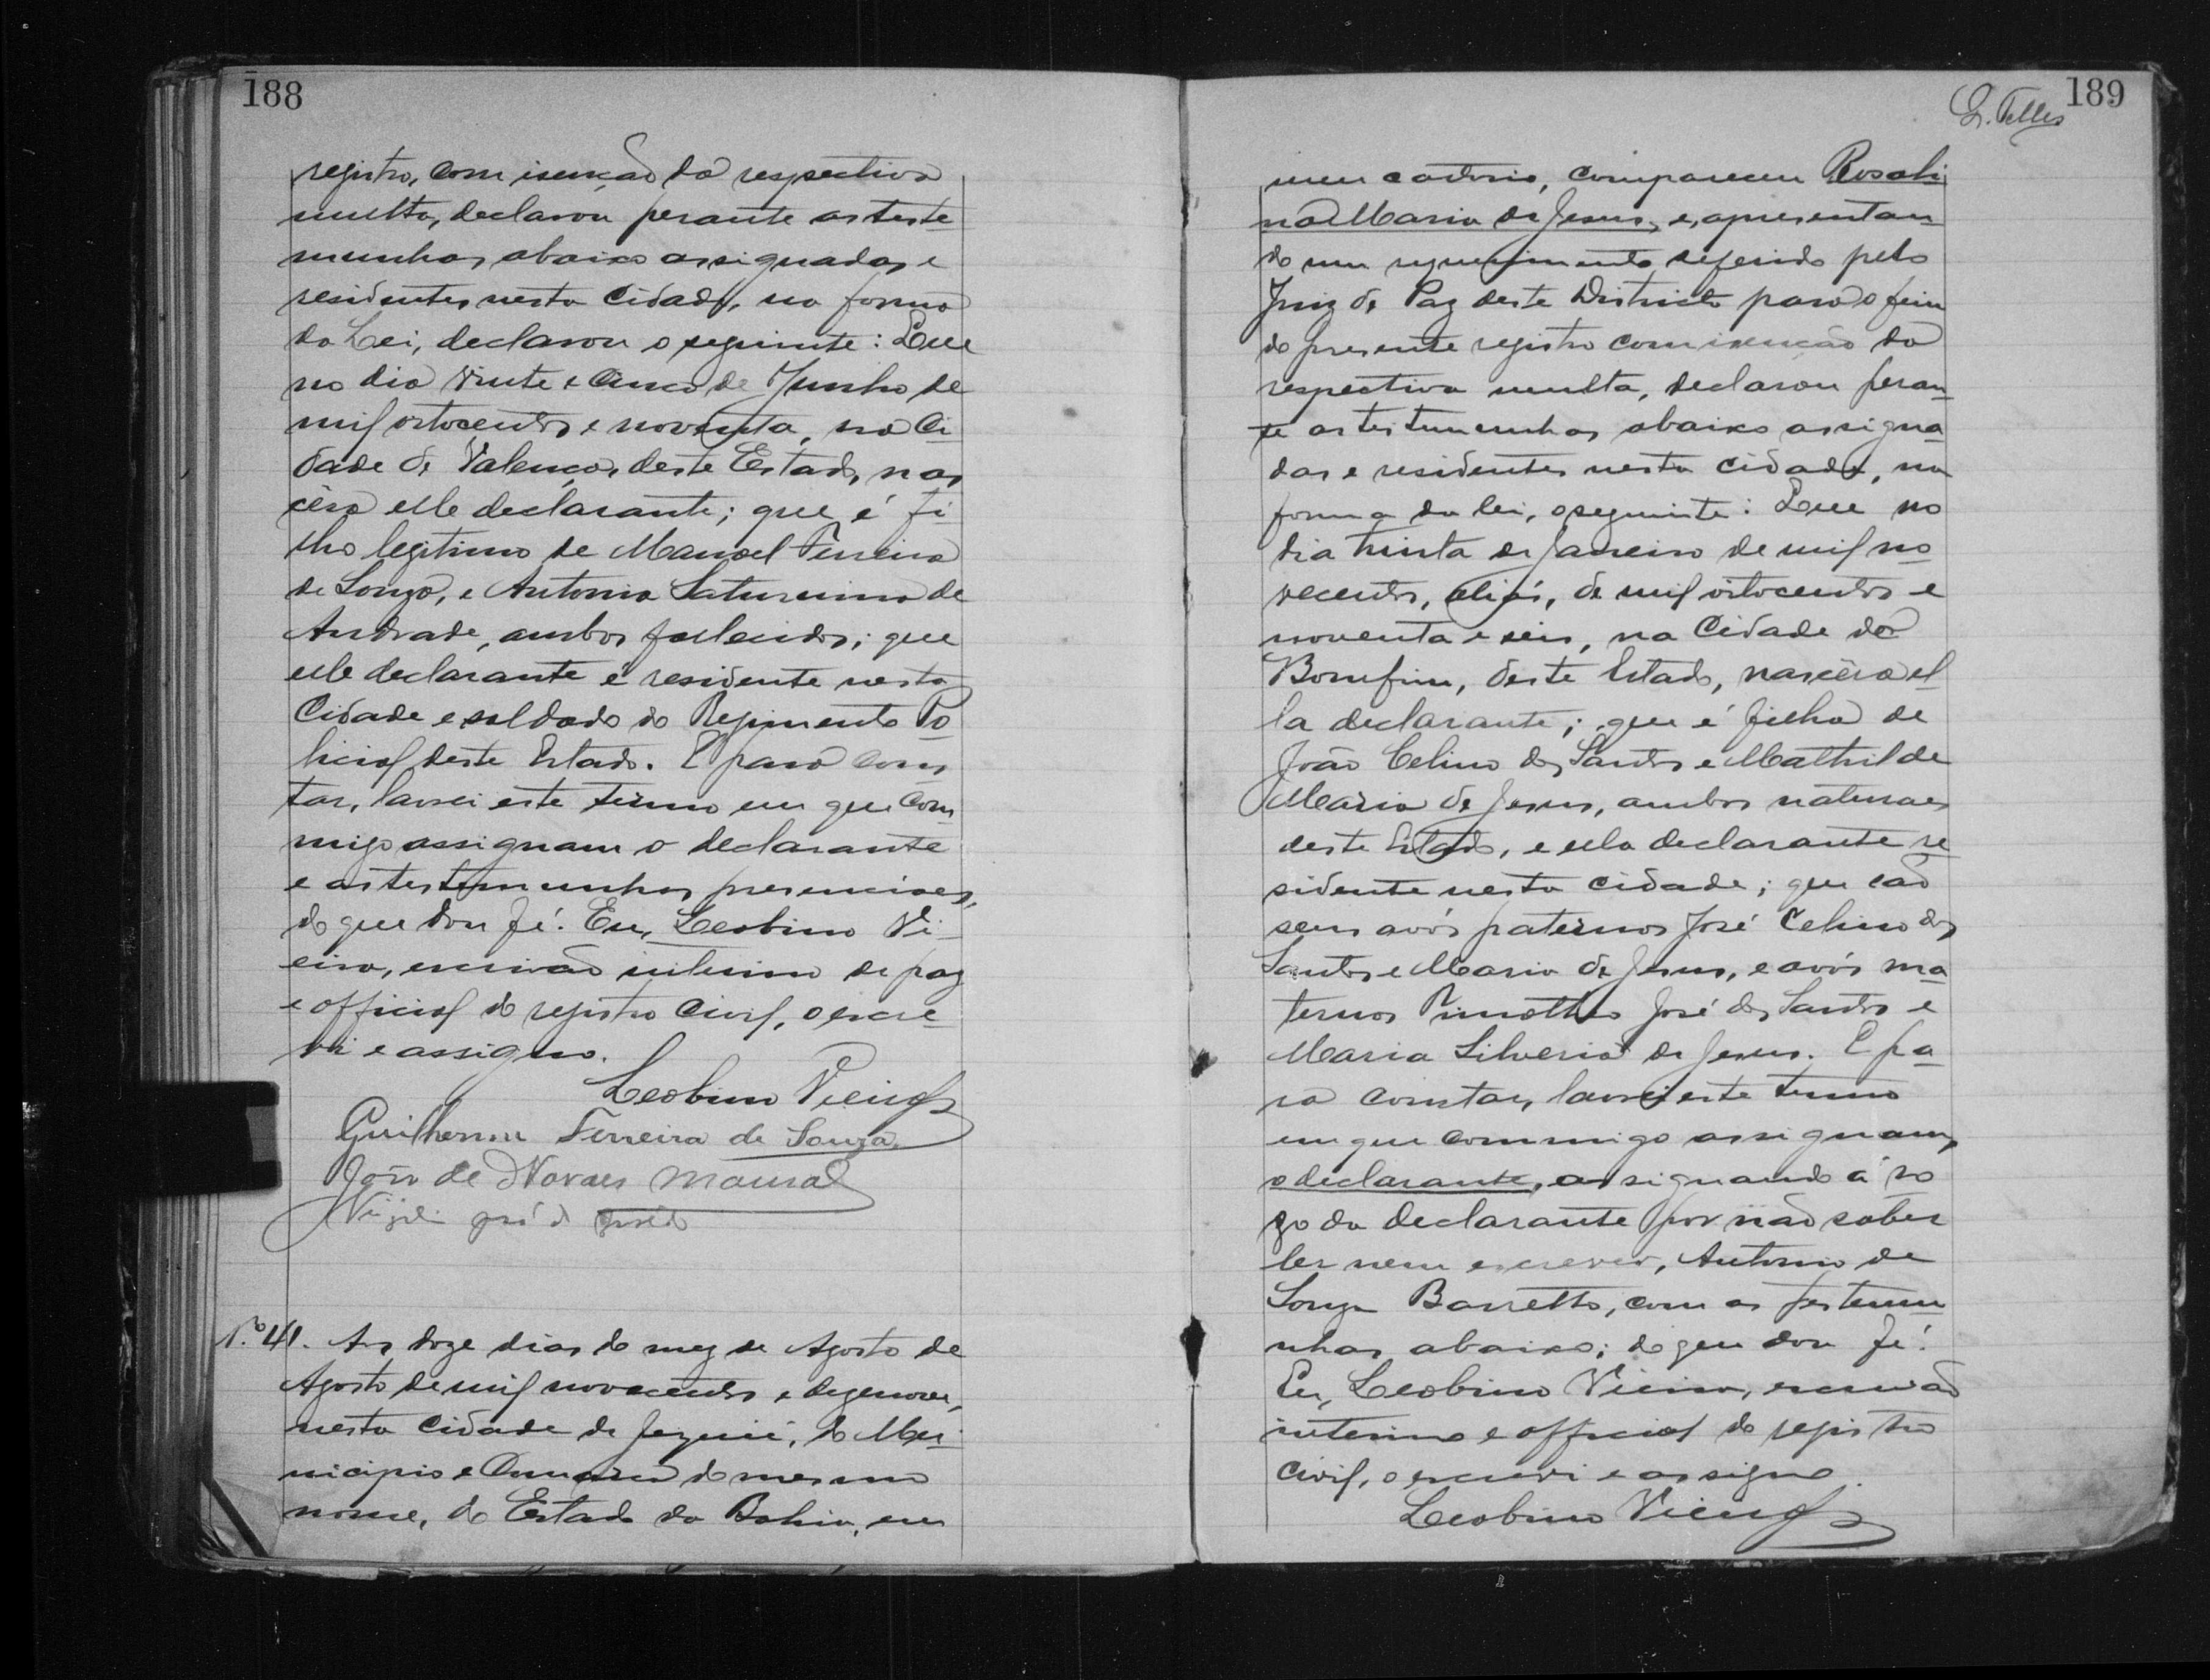 188
registro, com isenção da respectiva
multa, declarou perante as teste
munhas abaixo assignadas e
residentes nesta Cidade, na forma
da Lei, declarou o seguinte: Que
no dia vinte e cinco de Junho de
mil oitocentos e noventa, na Ci
dade de Valença, deste Estado, nas
cêra elle declarante; que é fi
lho legitimo de Manoel Ferreira
de Souza, e Antonia Saturnina de
Andrade, ambos fallecidos; que
elle declarante é residente nesta
Cidade e soldado do Regimento Po
licial deste Estado. E para cons
tar, lavrei este termo em que com
migo assignam o declarante
e as testemunhas presenciaes,
do que dou fé. Eu, Leobino Vi
eira, escrivão interino de paz
e official do registro Civil, o escre
vi e assigno.
Leobino Vieira
Guilherme Ferreira de Souza
João de Novaes Moura
José de
N.º 41. Aos doze dias do mez de Agosto de
Agosto de mil novecentos e dezenove,
nesta Cidade de Jequié, do Mu
nicipio e Comarca do mesmo
nome, do Estado da Bahia, em
189
L. Telles
meu cartorio, compareceu Rosali
na Maria de Jesus, e, apresentan
do um requerimento deferido pelo
Juiz de Paz deste Districto para o fim
do presente registro com isenção da
respectiva multa, declarou peran
te as testemunhas abaixo assigna
das e residentes nesta Cidade, na
forma da lei, o seguinte: Que no
dia trinta de Janeiro de mil no
vecentos, aliás, de mil oitocentos e
noventa e seis, na Cidade do
Bomfim, deste Estado, nascêra el
la declarante; que é filha de
João Celino dos Santos e Mathilde
Maria de Jesus, ambos naturaes
deste Estado, e ella declarante re
sidente nesta cidade; que são
seus avós paternos José Celino dos
Santos e Maria de Jesus, e avós ma
ternos Timotheo José dos Santos e
Maria Silveria de Jesus. E pa
ra constar, lavrei este termo
em que commigo assignam,
o declarante, assignando á ro
go da declarante por não saber
ler nem escrever, Antonio de
Souza Barretto, com as testemu
nhas abaixo; do que dou fé.
Eu, Leobino Vieira, escrivão
interino e official do registro
Civil, o escrevi e assigno.
Leobino Vieira